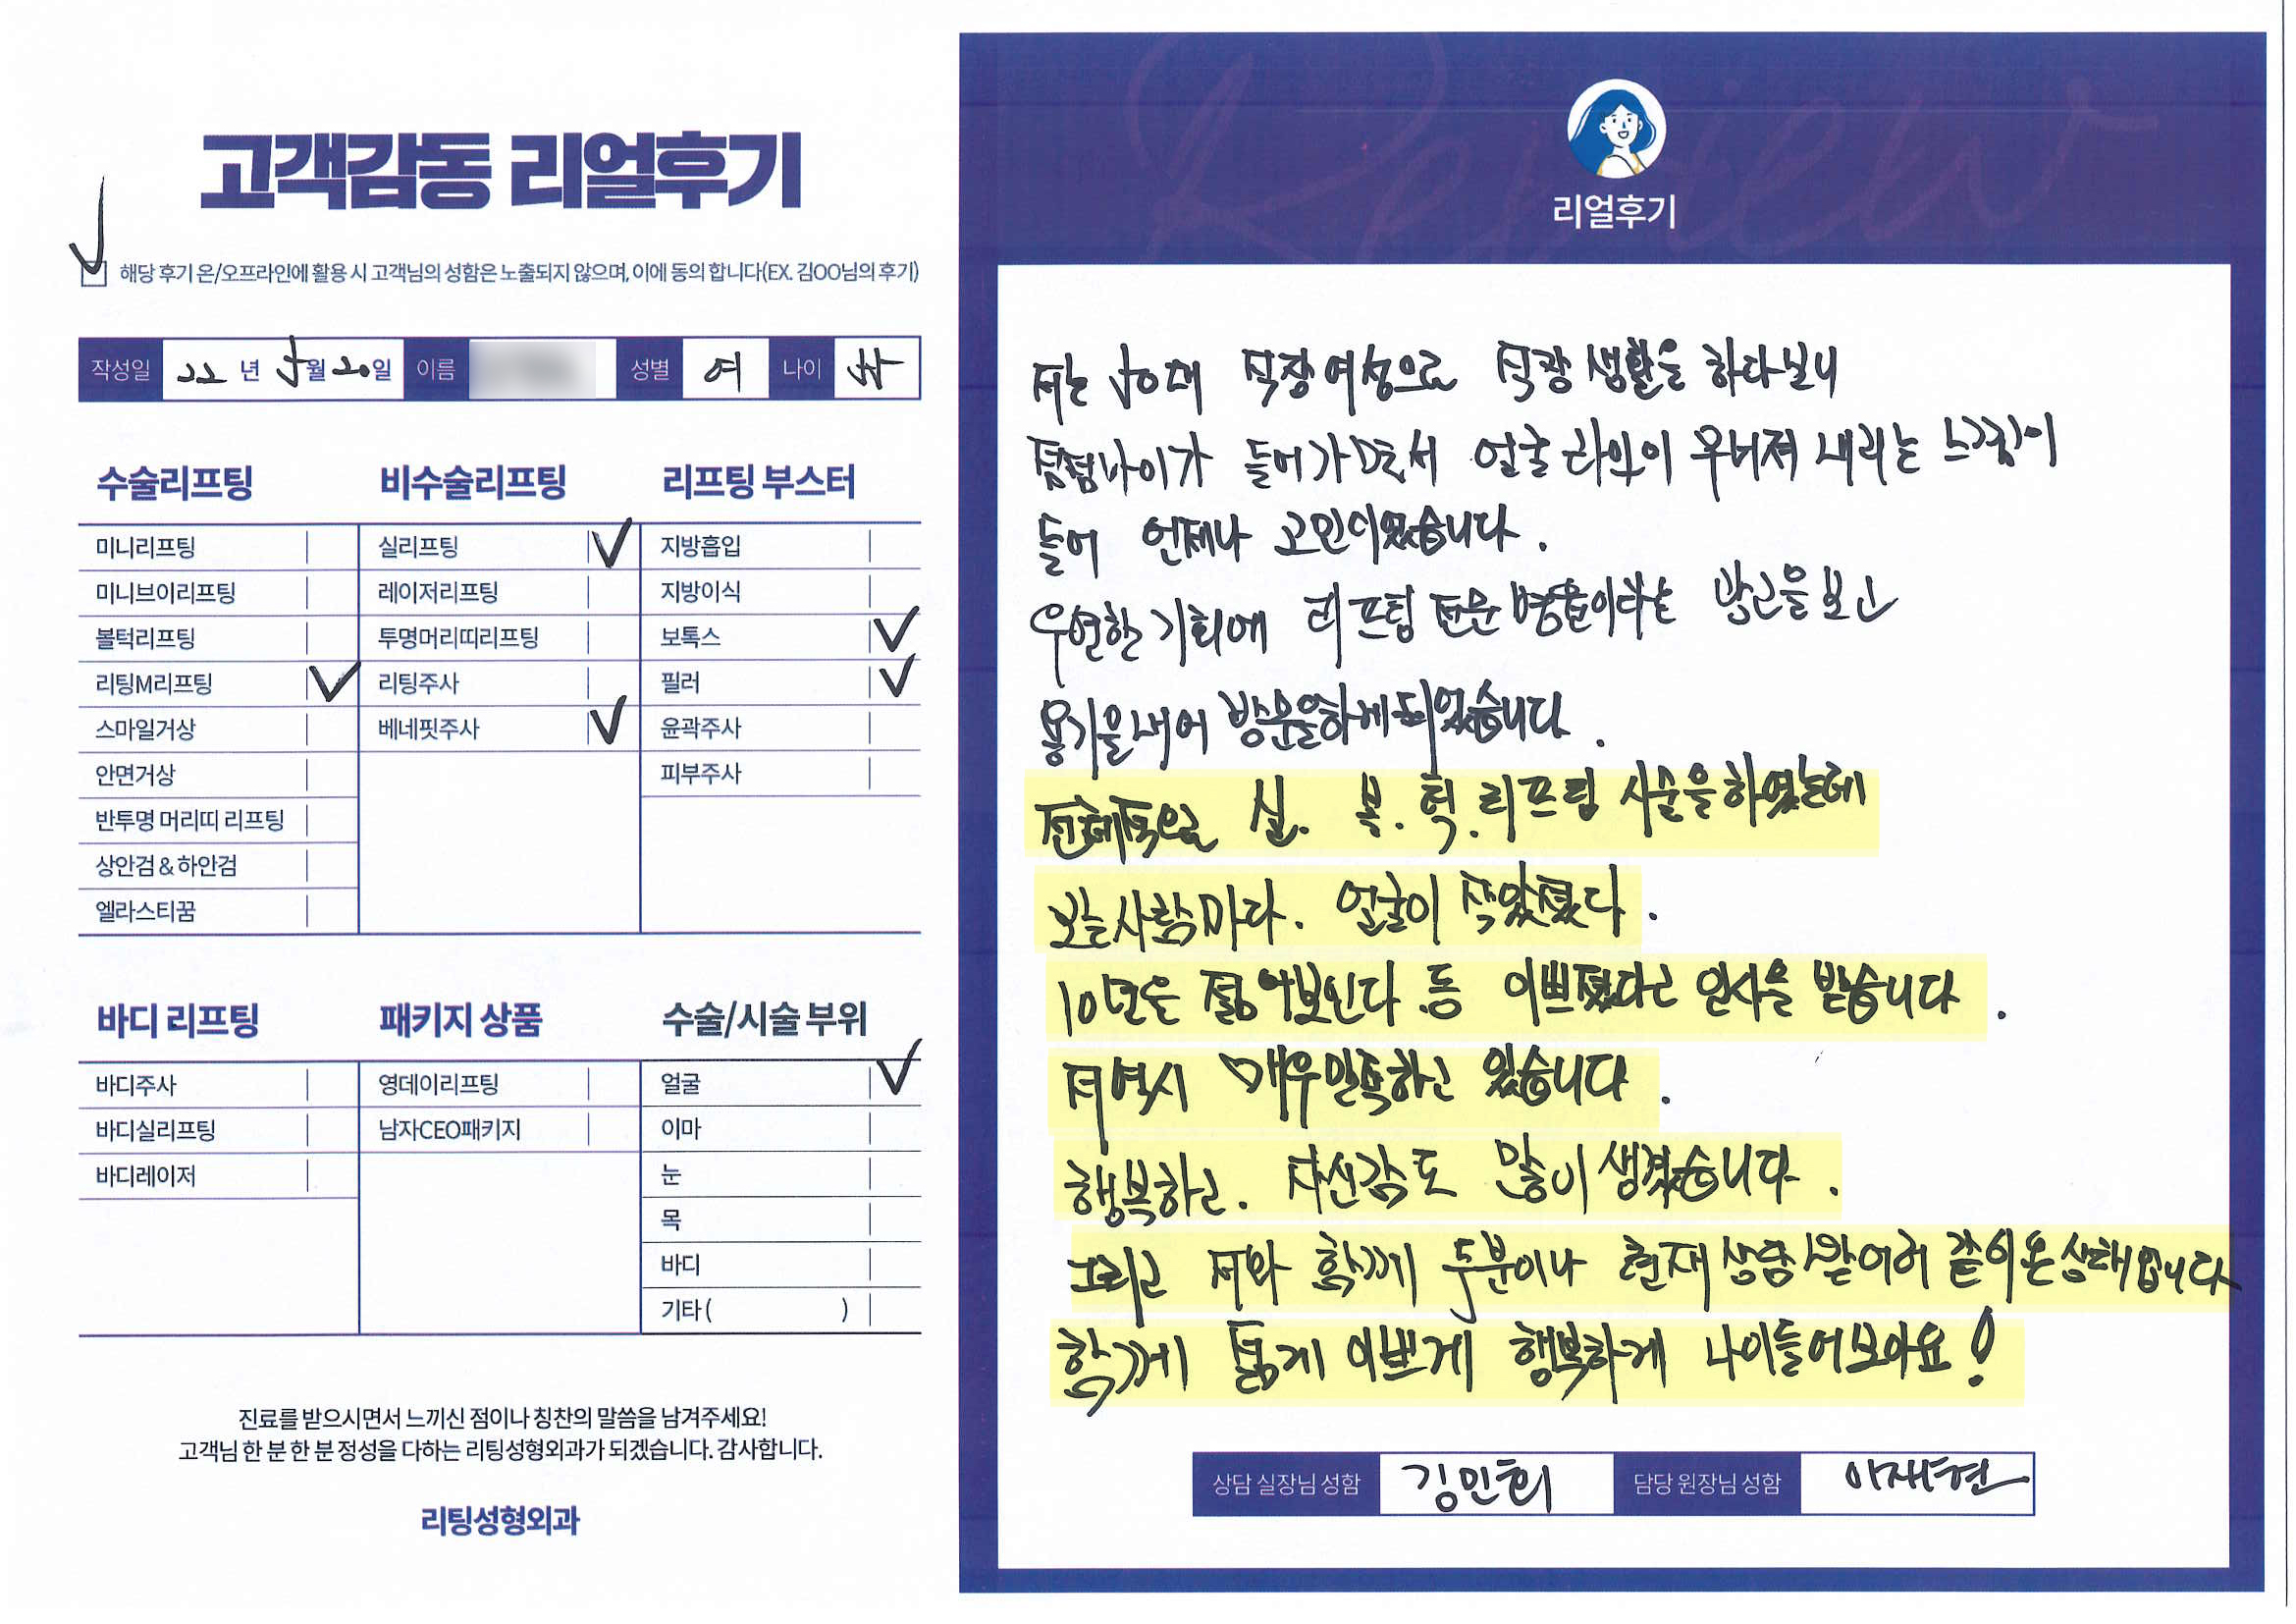 고객감동 리얼후기
해당 후기 온/오프라인에 활용 시 고객님의 성함은 노출되지 않으며, 이에 동의 합니다(EX. 김OO님의 후기)
작성일 22 년 5월 20일 이름 성별 여 나이
수술리프팅
미니리프팅
미니브이리프팅
볼턱리프팅
리팅M리프팅
스마일거상
안면거상
반투명 머리띠 리프팅
상안검 & 하안검
엘라스티꿈
비수술리프팅
실리프팅
레이저리프팅
투명머리띠리프팅
리팅주사
베네핏주사
리프팅 부스터
지방흡입
지방이식
보톡스
필러
윤곽주사
피부주사
바디 리프팅
바디주사
바디실리프팅
바디레이저
패키지 상품
영데이리프팅
남자CEO패키지
수술/시술 부위
얼굴
이마
눈
목
바디
기타 ( )
진료를 받으시면서 느끼신 점이나 칭찬의 말씀을 남겨주세요!
고객님 한 분 한 분 정성을 다하는 리팅성형외과가 되겠습니다. 감사합니다.
리팅성형외과
Review
리얼후기
저는 50대 직장여성으로 직장 생활을 하다보니
점점나이가 들어가면서 얼굴 라인이 무너져 내리는 느낌이
들어 언제나 고민이었습니다.
우연한 기회에 리프팅 전문 병원이라는 광고을 보고
용기을내어 방문을하게되었습니다.
전체적으로 실. 볼. 턱. 리프팅 시술을 하였는데
보는사람마다. 얼굴이 작았졌다.
10년은 젊어보인다 등 이쁘졌다고 인사을 받습니다.
저 역시 매우만족하고 있습니다.
행복하고. 자신감도 많이 생겼습니다.
그리고 저와 함께 두분이나 현재 상담 받어러 같이온 상태입니다
함께 젊게 이쁘게 행복하게 나이들어보아요!
상담 실장님 성함 김민희 담당 원장님 성함 이재현